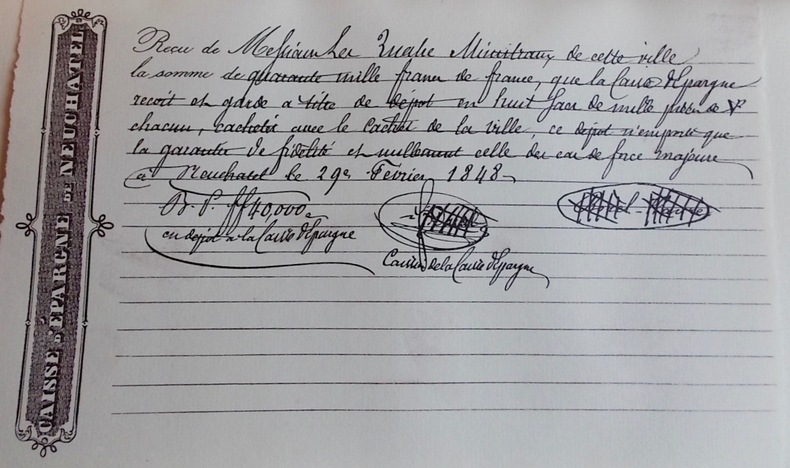 CAISSE D'EPARGNE DE NEUCHATEL
Reçu de Messieurs les Quatre Ministraux de cette ville
la somme de quarante mille francs de france, que la Caisse d'Epargne
reçoit et garde à titre de dépôt en huit sacs de mille pièces de V
chacun, cachetés avec le cachet de la ville, ce dépôt n'emporte que
la garantie de fidélité et nullement celle du cas de force majeure
à Neuchatel le 29e Février 1848
B. P. ff 40,000
en dépôt à la Caisse d'Epargne
Caissier de la Caisse d'Epargne